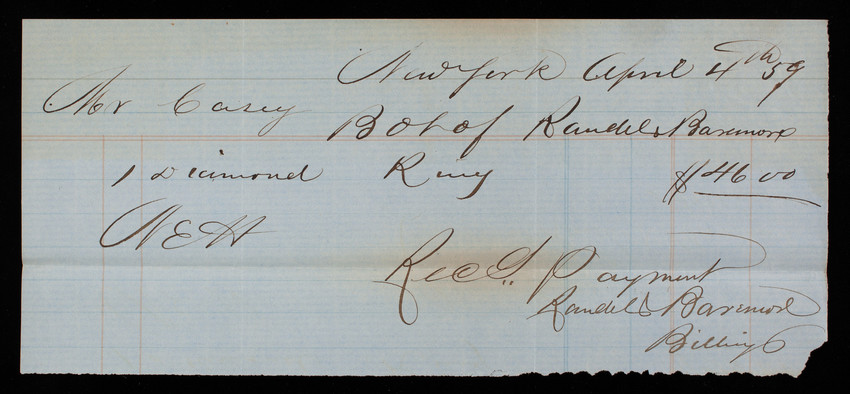 New York April 4th 59
Mr Casey
Bot of Randel & Baremore
1 Diamond Ring $46 00
NEH
Recd. Payment
Randel & Baremore
Billings